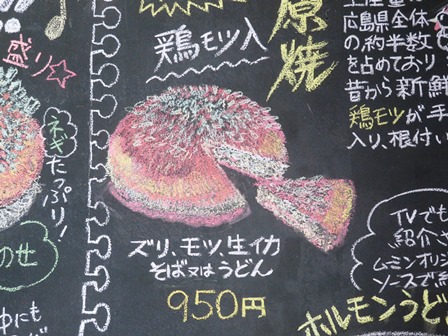 盛り☆
ネギ
たっぷり!
鶏モツ入
原焼
ズリ、モツ、生イカ
そば又はうどん
950円
広島県全体
の約半数
を占めており
昔から新鮮
鶏モツが手
入り、根付い
TVでも
紹介
ムミンオリジ
ソースで
ホルモンうど
中にも